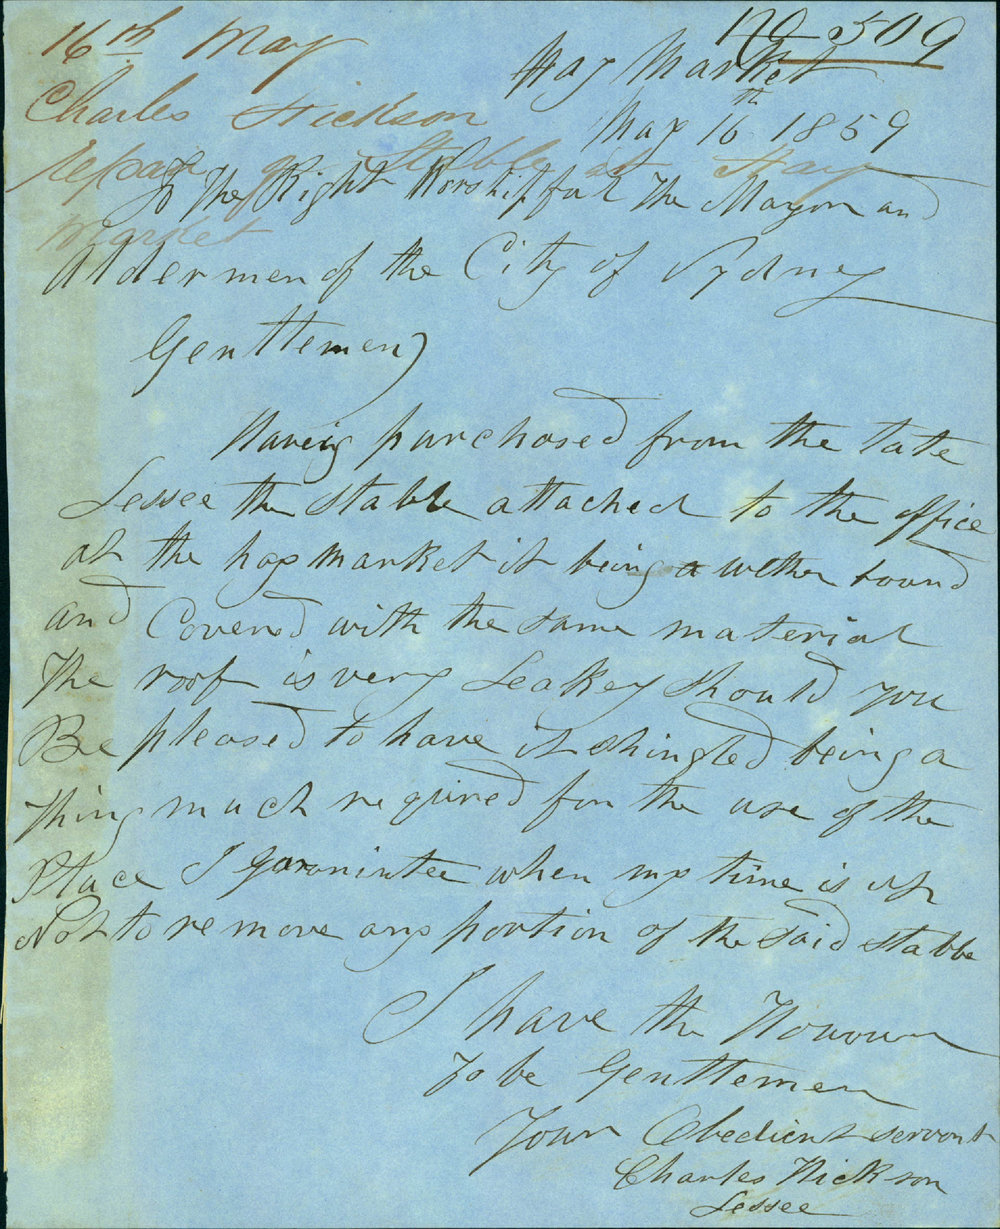 No 509
16th May
Charles Hickson
repair of Stable at Hay
Market
Hay Market
May 16th 1859
To The Right Worshipfal The Mayor and
Aldermen of the City of Sydney
Gentlemen)
Haveig purchased from the late
Lessee the stable attached to the office
at the hay market it being a wether bound
and Covered with the same material
The roof is very Leakey should you
Be pleased to have it shingled being a
Thing much required for the use of the
Place I garonintee when my time is up
Not to remove any portion of the said stabbe
I have the Honour
To be Gentlemen
Your Obedient servant
Charles Hickson
Lessee